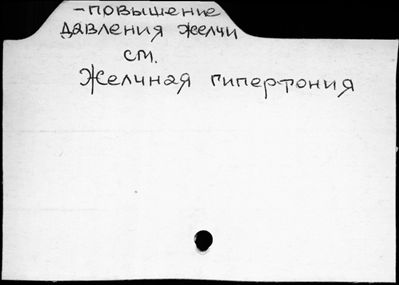 -повышение
давления желчи
см.
Желчная гипертония